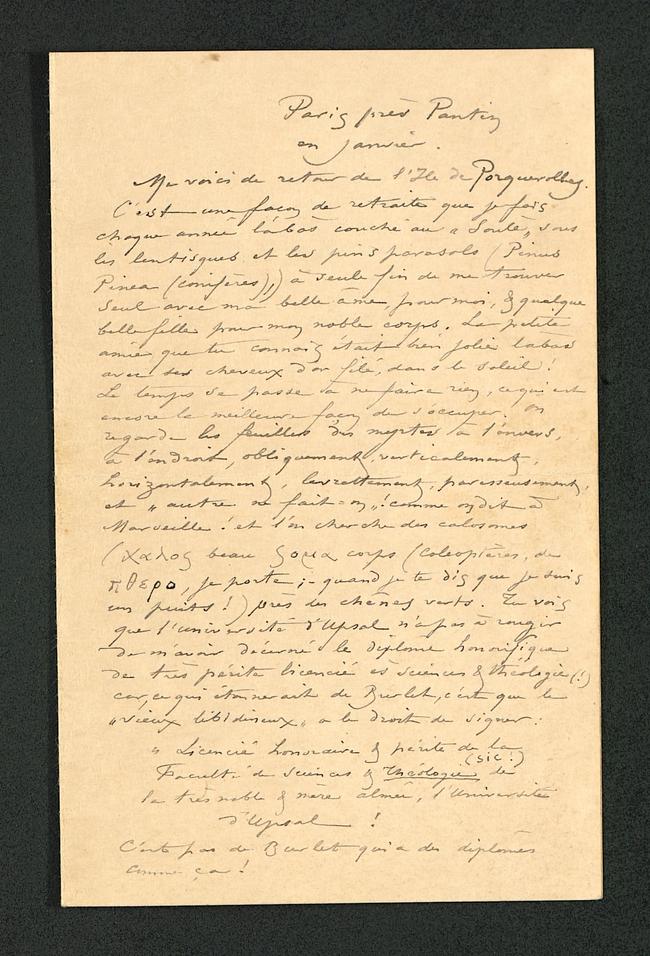 Paris près Pantin
en Janvier.
Me voici de retour de l'Ile de Porquerolles.
C'est une façon de retraite que je fais
chaque année là-bas couché au "Soulè", sous
les lentisques et les pins parasols (Pinus
Pinea (conifères),) à seule fin de me trouver
seul avec ma belle âme pour moi, & quelque
belle fille pour mon noble corps. La petite
amie que tu connais était bien jolie labas
avec ses cheveux d'or filé, dans le soleil !
Le temps se passe à ne faire rien, ce qui est
encore la meilleure façon de s'occuper. On
regarde les feuilles des myrtes à l'envers,
à l'endroit, obliquement, verticalement,
horizontalement, levrettement, paresseusement,
et "autre ne fait-on"! comme on dit à
Marseille ! et l'on cherche des calosomes
(χαλος beau ςομα corps (coleoptères, de
πθερο, je porte ;- quand je te dis que je suis
un puits !) près des chênes verts. Tu vois
que l'université d'Upsal n'a pas à rougir
de m'avoir décerné le diplome honorifique
de très périte licencié ès sciences & théologie (!)
car, ce qui étonnerait de Burlet, c'est que le
"vieux libidineux" a le droit de signer :
" Licencié honoraire & périte de la
Faculté de Sciences & Théologie (sic !) de
la très noble & mère almée, l'Université
d'Upsal !
C'est pas de Burlet qui a des diplômes
comme ça !